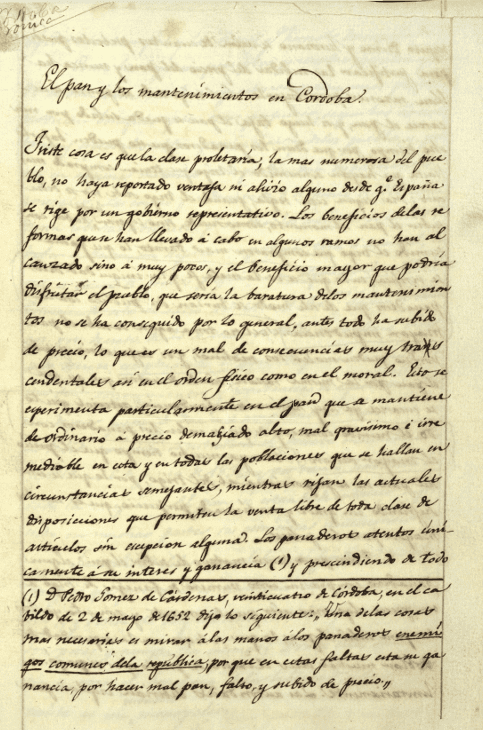 El pan y los mantenimientos en Cordoba.
Triste cosa es que la clase proletaria, la mas numerosa del pue
blo, no haya reportado ventaja ni alivio alguno desde q.e España
se rige por un gobierno representativo. Los beneficios de las re
formas que se han llevado á cabo en algunos ramos no han al
canzado sino á muy pocos, y el beneficio mayor que podria
disfrutar el pueblo, que seria la baratura delos mantenimien
tos no se ha conseguido por lo general, antes todo ha subido
de precio, lo que es un mal de consecuencias muy tras
cendentales asi en el orden fisico como en el moral. Esto se
esperimenta particularmente en el pan que se mantiene
de ordinario á precio demasiado alto, mal gravisimo é irre
mediable en esta y en todas las poblaciones que se hallan en
circunstancias semejantes, mientras rijan las actuales
disposiciones que permiten la venta libre de toda clase de
articulos sin escepcion alguna. Los panaderos atentos úni-
camente á su interes y ganancia (1) y prescindiendo de todo
(1) D. Pedro Gomez de Cárdenas, veinticuatro de Córdoba, en el ca
bildo de 2 de mayo de 1652 dijo lo siguiente: „Una delas cosas
mas necesarias es mirar á las manos á los panaderos enemi
gos comunes dela república, por que en estas faltas esta su ga
nancia, por hacer mal pan, falto, y subido de precio„